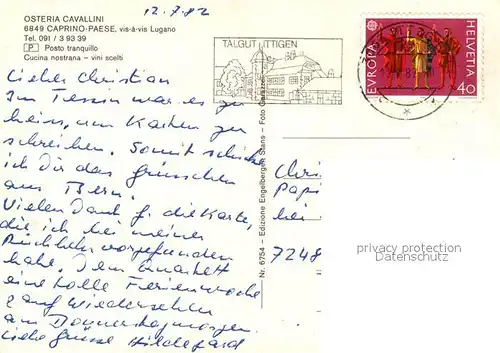 12.7.82
OSTERIA CAVALLINI
6849 CAPRINO-PAESE, vis-à-vis Lugano
Tel. 091 / 3 93 39
P Posto tranquillo
Cucina nostrana – vini scelti
TALGUT ITTIGEN
EUROPA
HELVETIA
40
Lieber Christian
Im Tessin war es zu
heiss, um Karten zu
schreiben. Somit schicke
ich Dir das Grüsschen
aus Bern.
Vielen Dank f. die Karte,
die ich bei meiner
Rückkehr vorgefunden
habe. Dem Quartett
eine tolle Ferienwoche
& auf Wiedersehen
am Donnerstagmorgen.
Liebe Grüsse Hildegard
Nr. 6754 – Edizione Engelberger Stans – Foto Garazzo
Chri
Papi
bei
7248
privacy protection
Datenschutz